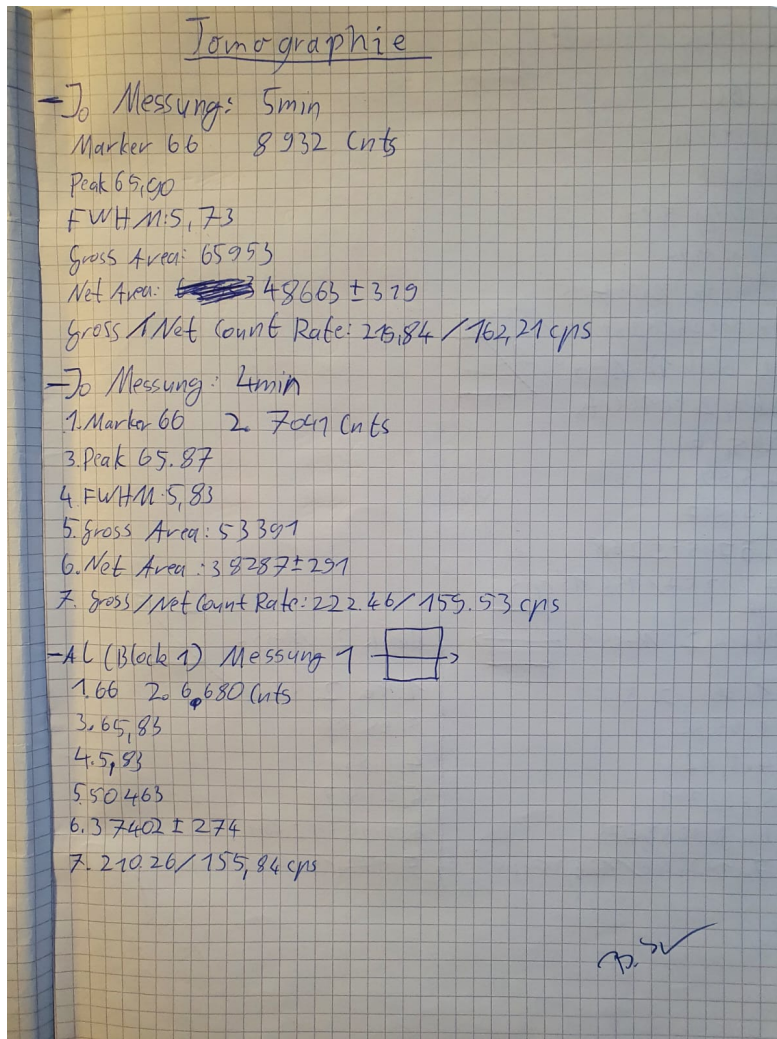 Tomographie
- I₀ Messung: 5min
Marker 66 8932 Cnts
Peak 65,90
FWHM: 5,73
Gross Area: 65953
Net Area: 48663 ± 319
Gross / Net Count Rate: 216,84 / 162,21 cps
- I₀ Messung: 4min
1. Marker 66 2. 7041 Cnts
3. Peak 65.87
4. FWHM: 5,83
5. Gross Area: 53391
6. Net Area: 38287 ± 291
7. Gross / Net Count Rate: 222.46 / 159.53 cps
- AL (Block 1) Messung 1
1. 66 2. 6.680 Cnts
3. 65,83
4. 5,83
5. 50463
6. 37402 ± 274
7. 210.26 / 155,84 cps